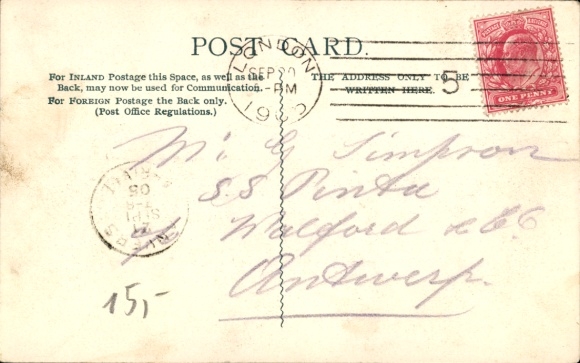 POST CARD.
For INLAND Postage this Space, as well as the
Back, may now be used for Communication.
For FOREIGN Postage the Back only.
(Post Office Regulations.)
THE ADDRESS ONLY TO BE
WRITTEN HERE.
LONDON
SEP
PM
19
5
ONE PENNY
Mr G Simpson
S.S. Pinta
Walford & Co
Antwerp.
15,-